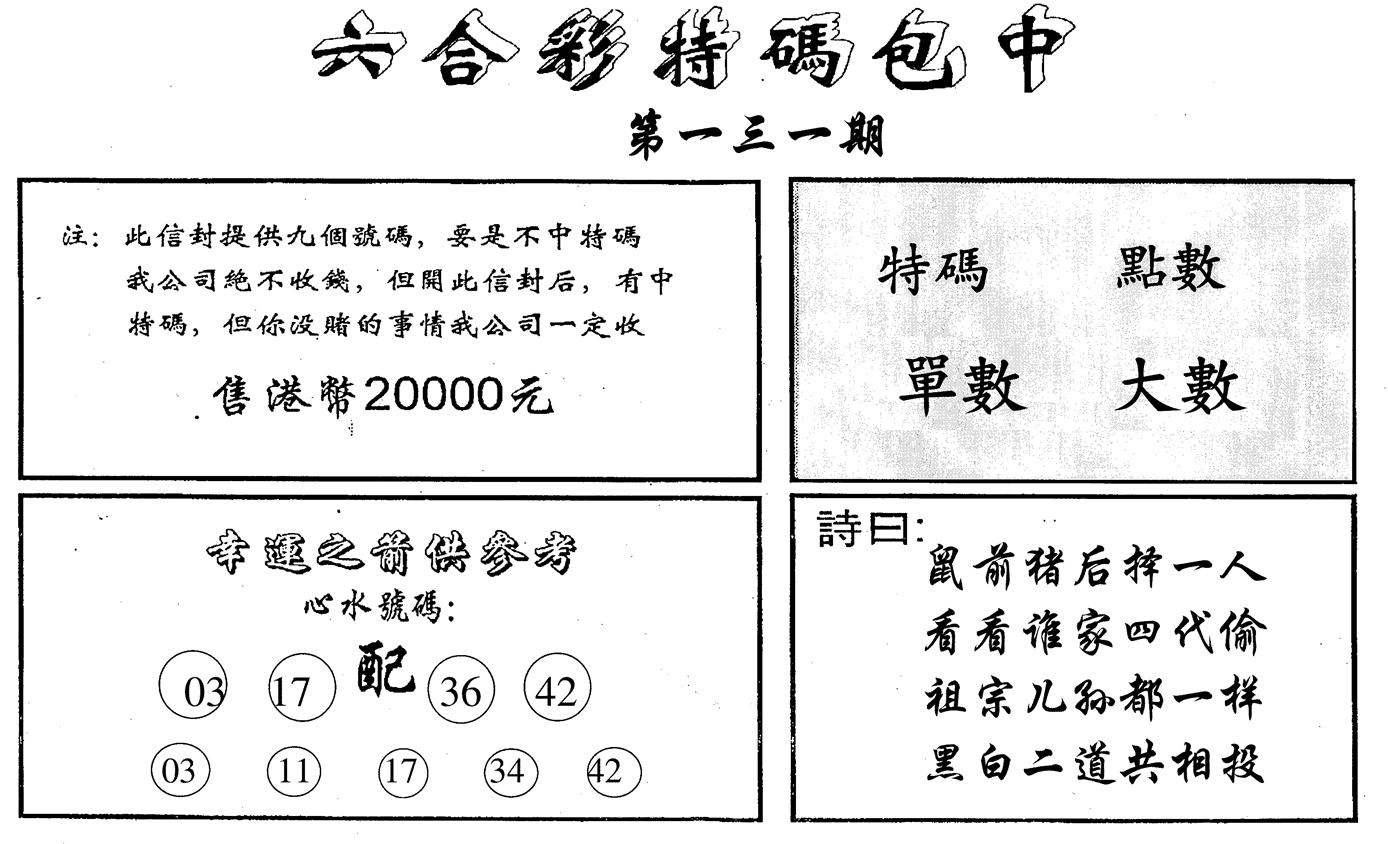 六合彩特碼包中
第一三一期
注：此信封提供九個號碼，要是不中特碼
我公司絕不收錢，但開此信封后，有中
特碼，但你没賭的事情我公司一定收
售港幣20000元
特碼 點數
單數 大數
幸運之箭供參考
心水號碼：
03 17 配 36 42
03 11 17 34 42
詩曰：
鼠前猪后择一人
看看谁家四代偷
祖宗儿孙都一样
黑白二道共相投